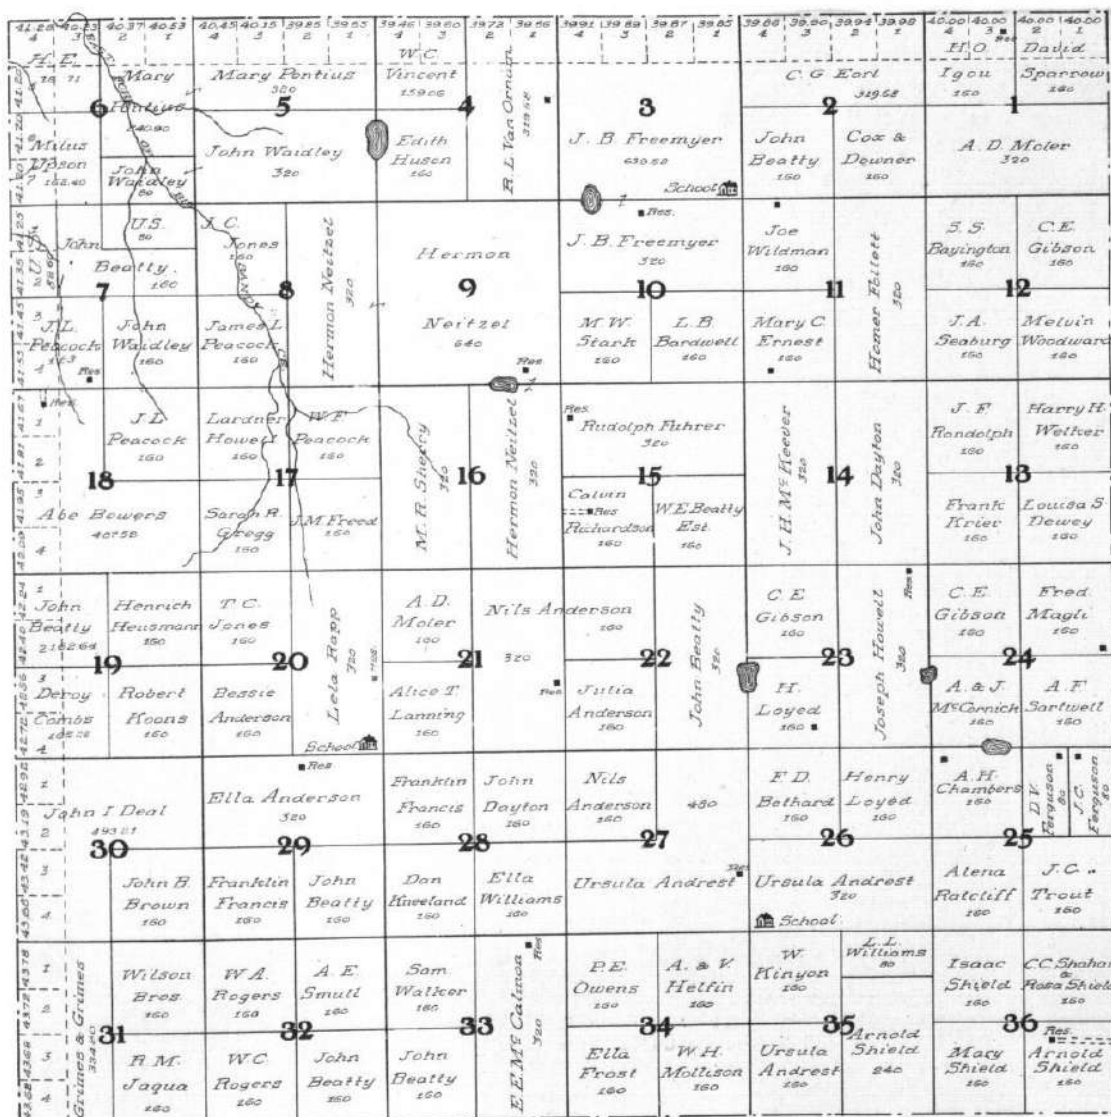 41.28 40.23 40.37 40.53 40.45 40.35 39.85 39.55 39.46 39.60 39.72 39.86 39.91 39.89 39.87 39.85 39.86 39.90 39.94 39.98 40.00 40.00 40.00 40.00
4 3 2 1 4 3 2 1 4 3 2 1 4 3 2 1 4 3 2 1 4 3 2 1
H. E.
Milus
Upson
162.40
Mary
Pontius
240.90
John
Waidley
80
6
Mary Pontius
320
5
John Waidley
320
W.C.
Vincent
159.06
Edith
Huson
160
4
R.L. Van Ornum
319.58
3
J. B. Freemyer
639.52
School
C. G. Earl
319.68
2
John
Beatty
160
Cox &
Downer
160
Res
H.O.
Igou
160
David
Sparrow
160
1
A. D. Moler
320
U.S.
80
John
Beatty
160
7
J.L.
Peacock
163
Res
John
Waidley
160
J. C.
Jones
160
SANDY CR.
8
James L.
Peacock
160
Hermon Neitzel
320
Hermon
9
Neitzel
640
Res
Res.
J. B. Freemyer
320
10
M.W.
Stark
160
L.B.
Bardwell
160
Joe
Wildman
160
11
Mary C.
Ernest
160
Homer Follett
320
S. S.
Bayington
160
C.E.
Gibson
160
12
J.A.
Seaburg
160
Melvin
Woodward
160
Res.
J.L.
Peacock
160
18
Abe Bowers
407.58
Lardner
Howell
160
W.F.
Peacock
160
17
Sarah R.
Gregg
160
J.M. Freed
160
M.R. Sherry
320
16
Hermon Neitzel
320
Res.
Rudolph Fuhrer
320
15
Calvin
Res
Richardson
160
W.E. Beatty
Est.
160
J.H. McKeever
320
14
John Dayton
320
J. F.
Randolph
160
Harry H.
Welker
160
13
Frank
Krier
160
Louisa S.
Dewey
160
John
Beatty
162.64
Henrich
Heusmann
160
19
Deroy
Combs
Robert
Koons
160
T. C.
Jones
160
20
Bessie
Anderson
160
Lela Rapp
320
Res.
School
A. D.
Moler
160
21
Alice T.
Lanning
160
Nils Anderson
320
160
Res
22
Julia
Anderson
160
John Beatty
320
C E
Gibson
160
23
H.
Loyed
160
Joseph Howell
320
Res
C. E.
Gibson
160
Fred
Magli
160
24
A. & J.
McCornick
160
A. F.
Sartwell
160
John I. Deal
493.21
30
John B.
Brown
160
Res
Ella Anderson
320
29
Franklin
Francis
160
John
Beatty
160
Franklin
Francis
160
John
Dayton
160
28
Dan
Kneeland
160
Ella
Williams
160
Nils
Anderson
160
480
27
Res
Ursula Andrest
F. D.
Bethard
160
Henry
Loyed
160
26
Ursula Andrest
320
School
A. H.
Chambers
160
D.V.
Ferguson
80
J.C.
Ferguson
80
25
Alena
Ratcliff
160
J. C.
Trout
160
Grimes & Grimes
Wilson
Bros.
160
31
R. M.
Jaqua
160
W A.
Rogers
160
A. E.
Smull
160
32
W.C.
Rogers
160
John
Beatty
160
Sam.
Walker
160
33
John
Beatty
160
E E Mc Calmon
320
Res
P.E.
Owens
160
A. & V.
Helfin
160
34
Ella
Frost
160
W.H.
Mollison
160
W.
Kinyon
160
L. L.
Williams
80
35
Ursula
Andrest
160
Arnold
Shield
240
Isaac
Shield
160
C.C. Shahan
&
Rosa Shield
160
36
Mary
Shield
160
Res.
Arnold
Shield
160